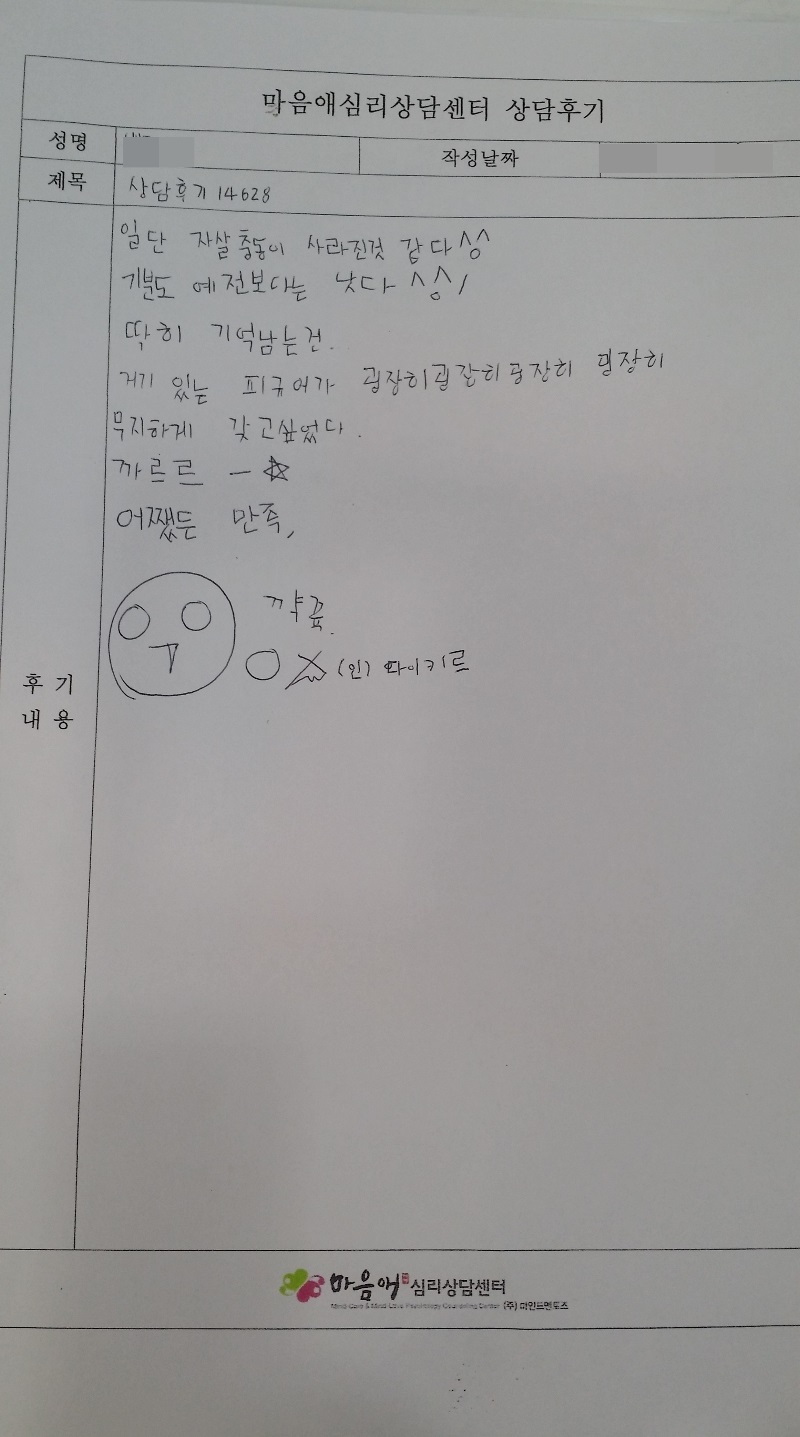 마음애심리상담센터 상담후기
성명
작성날짜
제목 상담후기 14628
일단 자살충동이 사라진것 같다^^
기분도 예전보다는 낫다^^/
딱히 기억남는건.
거기 있는 피규어가 굉장히굉장히굉장히 굉장히
무지하게 갖고싶었다.
까르르 -☆
어쨌든 만족,
꺅꿒.
(인) 따이키르
후기
내용
마음애 심리상담센터
Mind-Care & Mind-Love Psychology Counseling Center (주) 마인드멘토즈